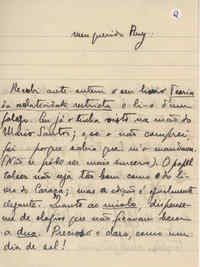 meu querido Ruy.
Recebi ante-ontem o seu livro Teoria
da relatividade restrita e li-o d'um
folego. Eu já o tinha visto na mão do
Mário Santos; e se o não comprei,
foi porque sabia que m'o mandava.
(Não se pode ser mais sincero). O papel
talvez não seja tão bom como o do li-
vro do Caraça; mas a edição é igualmente
elegante. Quanto ao miolo, dispense-
me de elogios que não ficavam bem
a dua. Precioso e claro, como um
dia de sol!